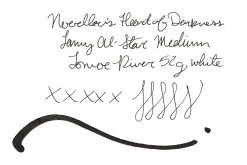 Noodler's Heart of Darkness
Lamy Al-Star Medium
Tomoe River 52g white
x x x x x